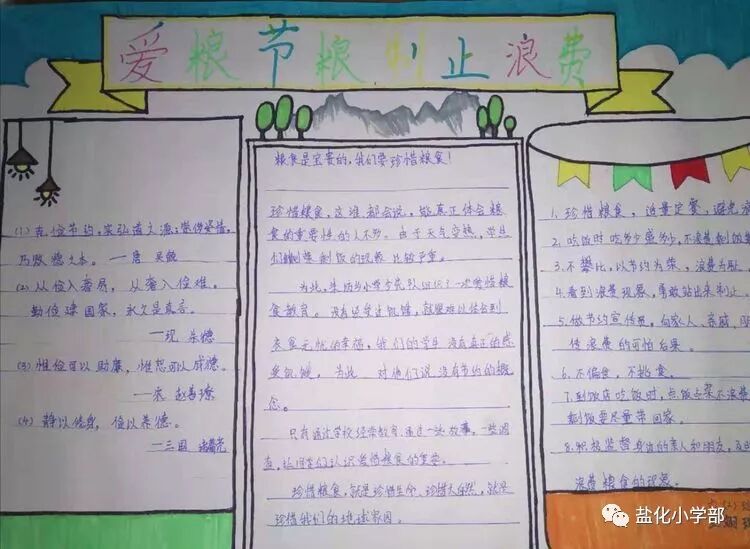 爱粮节粮制止浪费
(1)克俭节约,实弘道之源;崇侈恣情,
乃败德之本。—唐 吴兢
(2)从俭入奢易,从奢入俭难。
勤俭建国家,永久是真言。
—现 朱德
(3)惟俭可以助廉,惟恕可以成德。
—宋 赵善璙
(4)静以修身,俭以养德。
—三国 诸葛亮
粮食是宝贵的,我们要珍惜粮食!
珍惜粮食,这谁都会说,能真正体会粮
食的重要性的人不多。由于天气变热,学生
们剩菜剩饭的现象比较严重。
为此,
食教育。没有经受过饥饿,就很难以体会到
衣食无忧的幸福,我们的学生没有真正的感
受饥饿,为此 对他们说没有节约的概
念。
只有通过学校经常教育,通过一次故事,一些调
查,让同学们认识爱惜粮食的重要。
珍惜粮食,就是珍惜生命、珍惜大自然,就是
珍惜我们的地球家园。
1.珍惜粮食,适量定餐,避免
2.吃饭时吃多少盛多少,不浪费剩饭
3.不攀比,以节约为荣、浪费为耻
4.看到浪费现象,勇敢站出来制止,
5.做节约宣传员,向家人、亲戚、朋
传浪费的可怕后果。
6.不偏食,不挑食。
7.到饭店吃饭时,点饭点菜不浪费
剩饭要尽量带回家。
8.积极监督身边的亲人和朋友,及
浪费粮食的现象。
盐化小学部